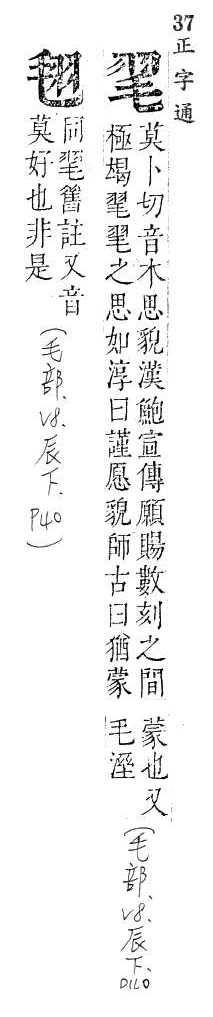 37
正字通
毣
莫卜切音木思貌漢鮑宣傳願賜數刻之間
極竭毣毣之思如淳曰謹愿貌師古曰猶蒙
蒙也又
毛溼
(毛部.v8.辰下.
同毣舊註又音
莫好也非是
(毛部.v8.辰下.P40)